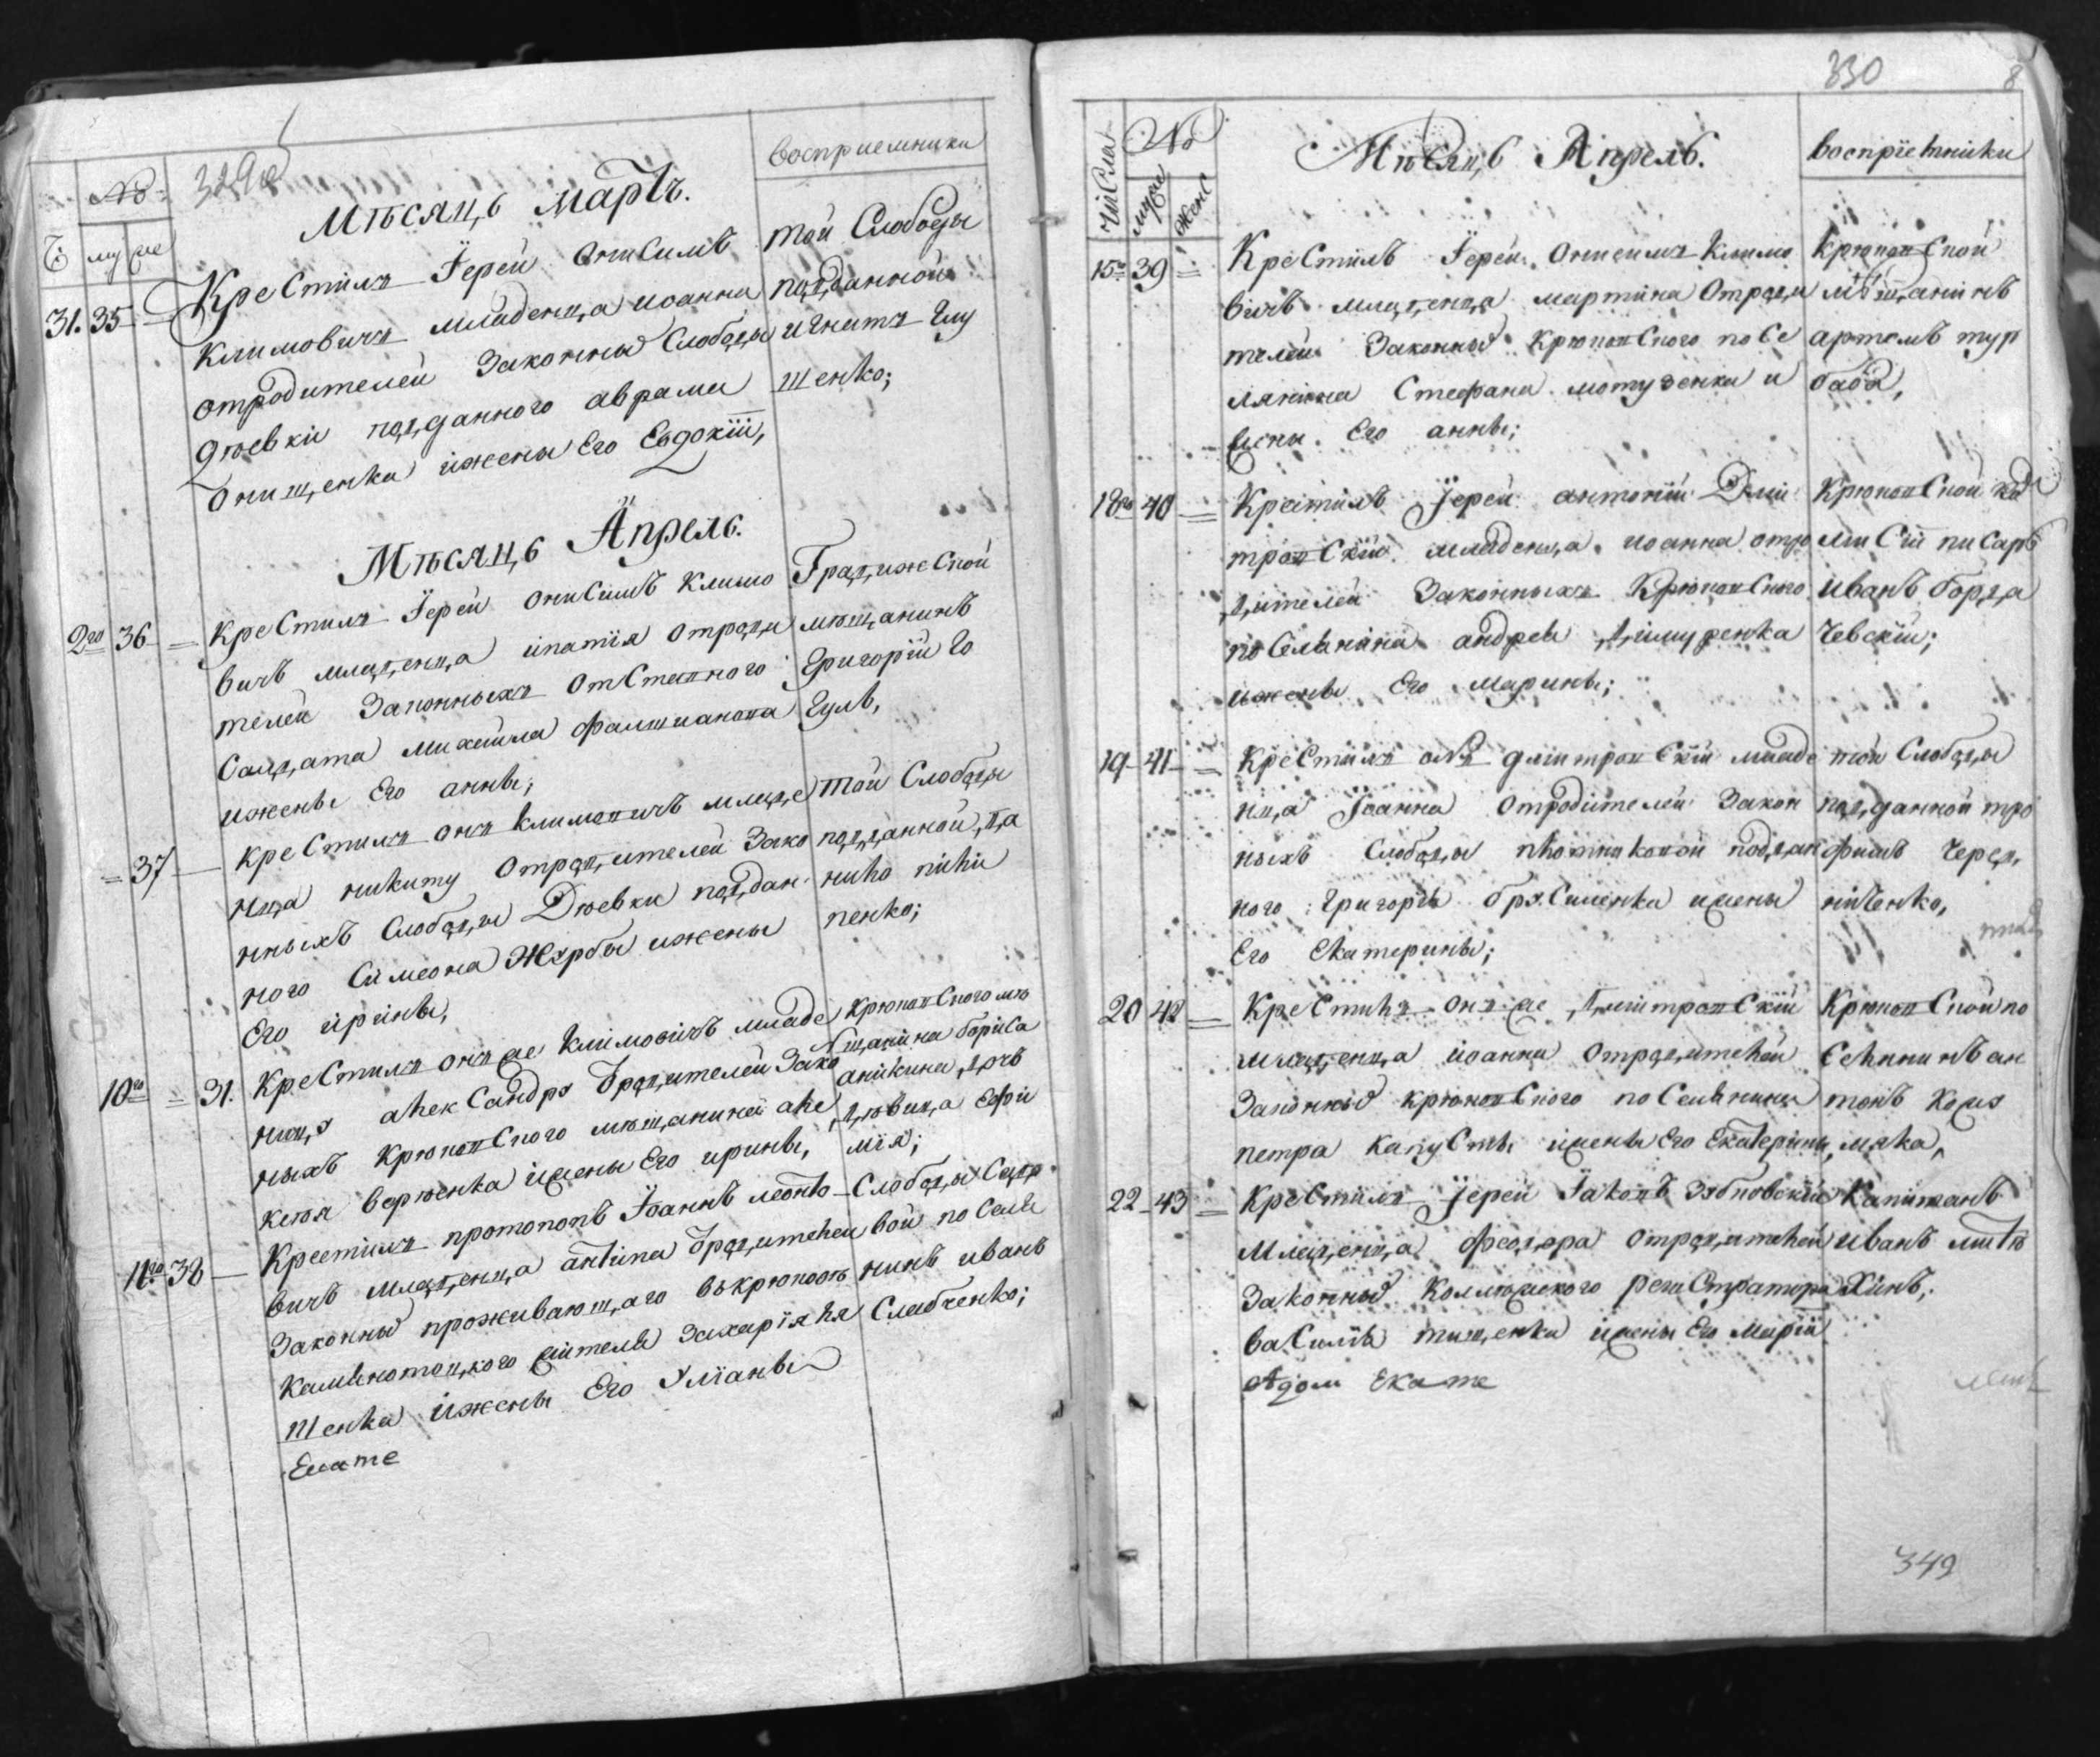 329об
№
восприемники
Ч: му же
Мѣсяцъ Мартъ.
31. 35 — Крестилъ Іерей Онисимъ
Климовичъ младенца иоанна
отродителей Законных Слободы
Дмевки подданного аврама
Онищенка ижены Его Евдокіи,
той Слободы
подданной
игнатъ Глу
щенко;
Мѣсяцъ Апрель.
2го 36 — Крестилъ Іерей Онисимъ Климо
вичъ младенца ипатія отроди
телей Законныхъ отставного
Салдата Михайла
ижены Его анны;
Градижской
мѣщанинъ
Григорій Го
гуль,
= 37 — Крестилъ онъ Климовичъ младе
нца никиту отродителей Зако
нныхъ Слободы Дмевки поддан
ного Симеона Журбы ижены
Его ирины,
той Слободы
подданной да
нило пили
пенко;
10го = 31. Крестилъ онже Климовичъ младе
нцу александру отродителей Зако
ныхъ крюковского мѣщанина але
ксѣя Вервенка ижены Его ирины,
Крюковского мѣ
щанина бориса
аникина дочь
дѣвица Ефи
мія;
11го 38 — Крестилъ протопопъ Іоаннъ леонто
вичъ младенца антипа отродителей
Законных проживающаго въкрюковѣ
каменотопкого жителя Захарія ля
шенка ижены Его Уліаны
Екате
Слободы Садо
вой посели
нинъ иванъ
Слабченко;
330
8
Числа
№
муже
женс
Мѣсяцъ Апрель.
воспріемники
15го 39 = Крестилъ Іерей Онисимъ Климо
вичъ младенца мартина отроди
телей Законных крюковского посе
лянина Стефана мотузенка и
жены Его анны;
Крюковской
мѣщанинъ
артемъ тур
баба,
18го 40 = Крестилъ Іерей антоній Дми
тровскій младенца иоанна отро
дителей Законныхъ Крюковского
поселянина андрея димуренка
ижены Его марины;
Крюковской ко
миСіи писарь
иванъ борда
чевскій;
19 41 = Крестилъ онъ дмитровскій младе
нца Іоанна отродителей Закон
ныхъ Слободы поддан
ного Григорія ижены
Его Екатерины;
той Слободы
подданной тро
фимъ черед
ниченко,
20 42 = Крестилъ онже дмитровскій
младенца иоанна отродителей
Законных крюковского поселянина
петра капусты ижены Его Екатерины,
Крюковской по
селянинъ ан
тонъ
мяка,
22 43 = Крестилъ Іерей Іаковъ Зубковскій
Младенца феодора отродителей
Законных коллежского региСтратора
ваСилія тищенка ижены Его Маріи
Адом Екате
Капитанъ
иванъ митю
хинъ,
349